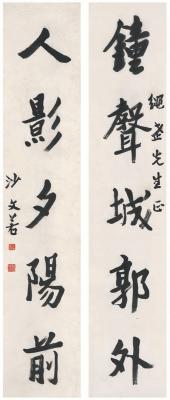 鐘聲城郭外
繩老先生正
人影夕陽前
沙文若